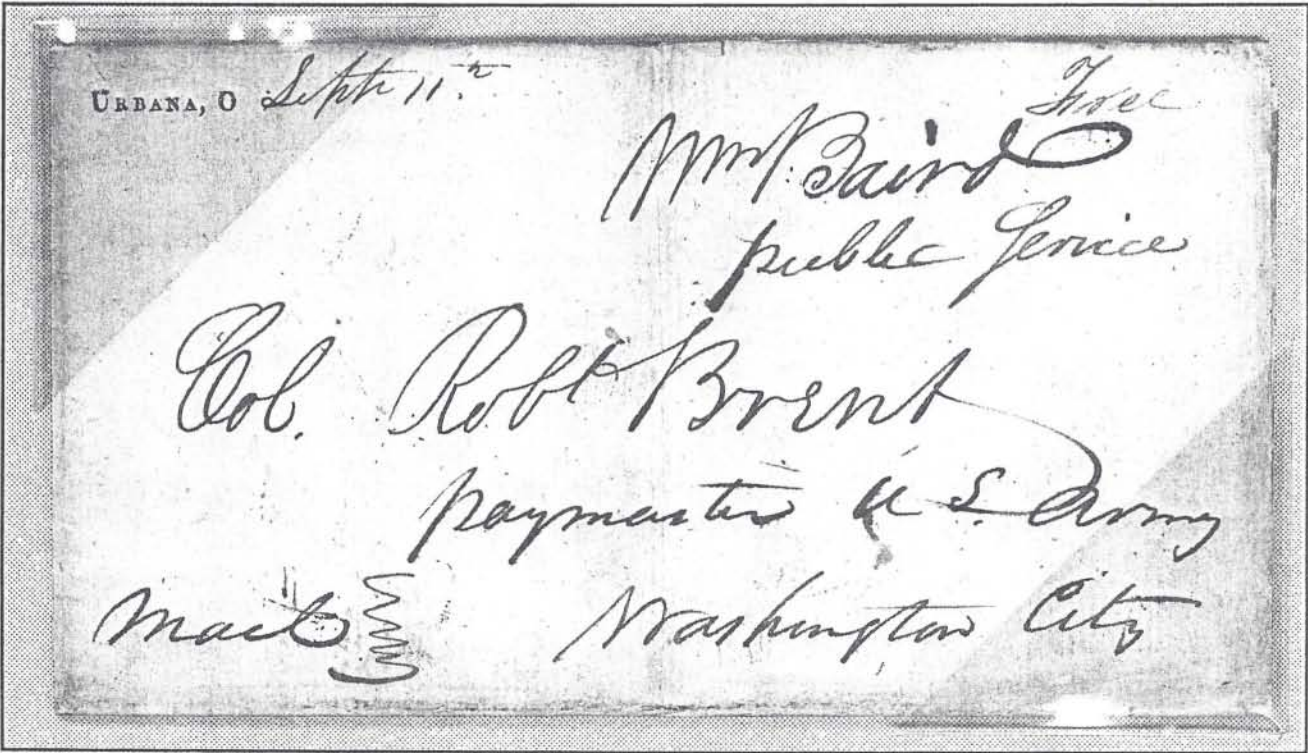 URBANA, O Septr 11th
Free
Wm Baird
public Service
Col. Robt Brent
paymaster U S. Army
Mail Washington City